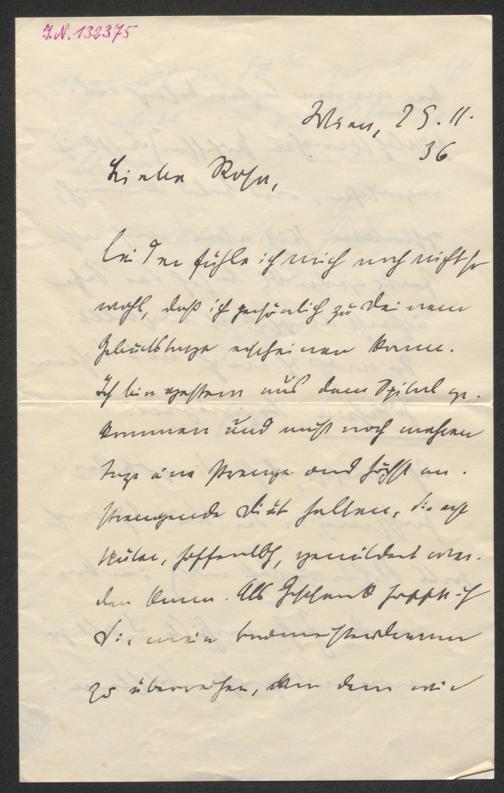 J.N. 132375
Wien, 25. 11.
36
Liebe Rosa,
leider fühle ich mich noch nicht so
wohl, daß ich persönlich zu deinem
Geburtstage erscheinen kann.
Ich bin gestern aus dem Spital ge-
kommen und muß noch mehrere
Tage eine strenge und höchst an-
strengende Diät halten, die erst
später, hoffentlich, gemildert wer-
den kann. Als Geschenk hoffte ich
Dir
zu überreichen, dem wir